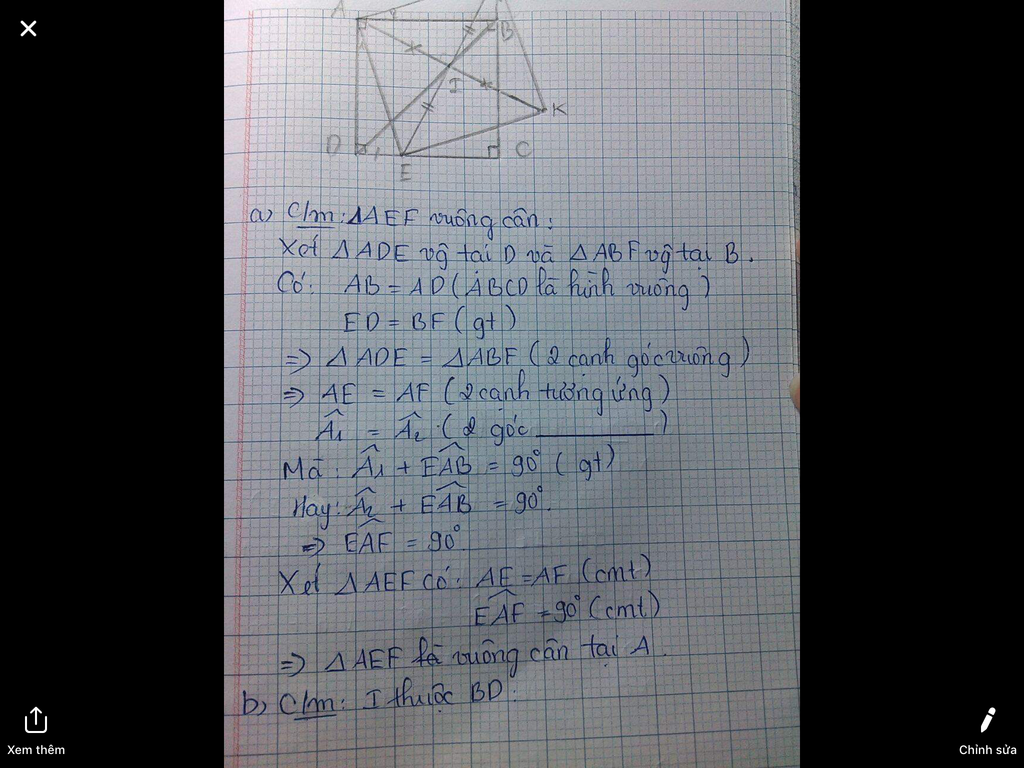 A
B
I
K
D
1
C
E
a) C/m: ΔAEF vuông cân:
Xét ΔADE vg̃ tại D và ΔABF vg̃ tại B.
Có: AB = AD (ABCD là hình vuông)
ED = BF (gt)
=> ΔADE = ΔABF (2 cạnh góc vuông)
=> AE = AF (2 cạnh tương ứng)
Â₁ = Â₂ (2 góc ________)
Mà: Â₁ + EÂB = 90° (gt)
Hay: Â₂ + EÂB = 90°.
=> EÂF = 90°.
Xét ΔAEF có: AE = AF (cmt)
EÂF = 90° (cmt)
=> ΔAEF là vuông cân tại A.
b) C/m: I thuộc BD:
Xem thêm
Chỉnh sửa